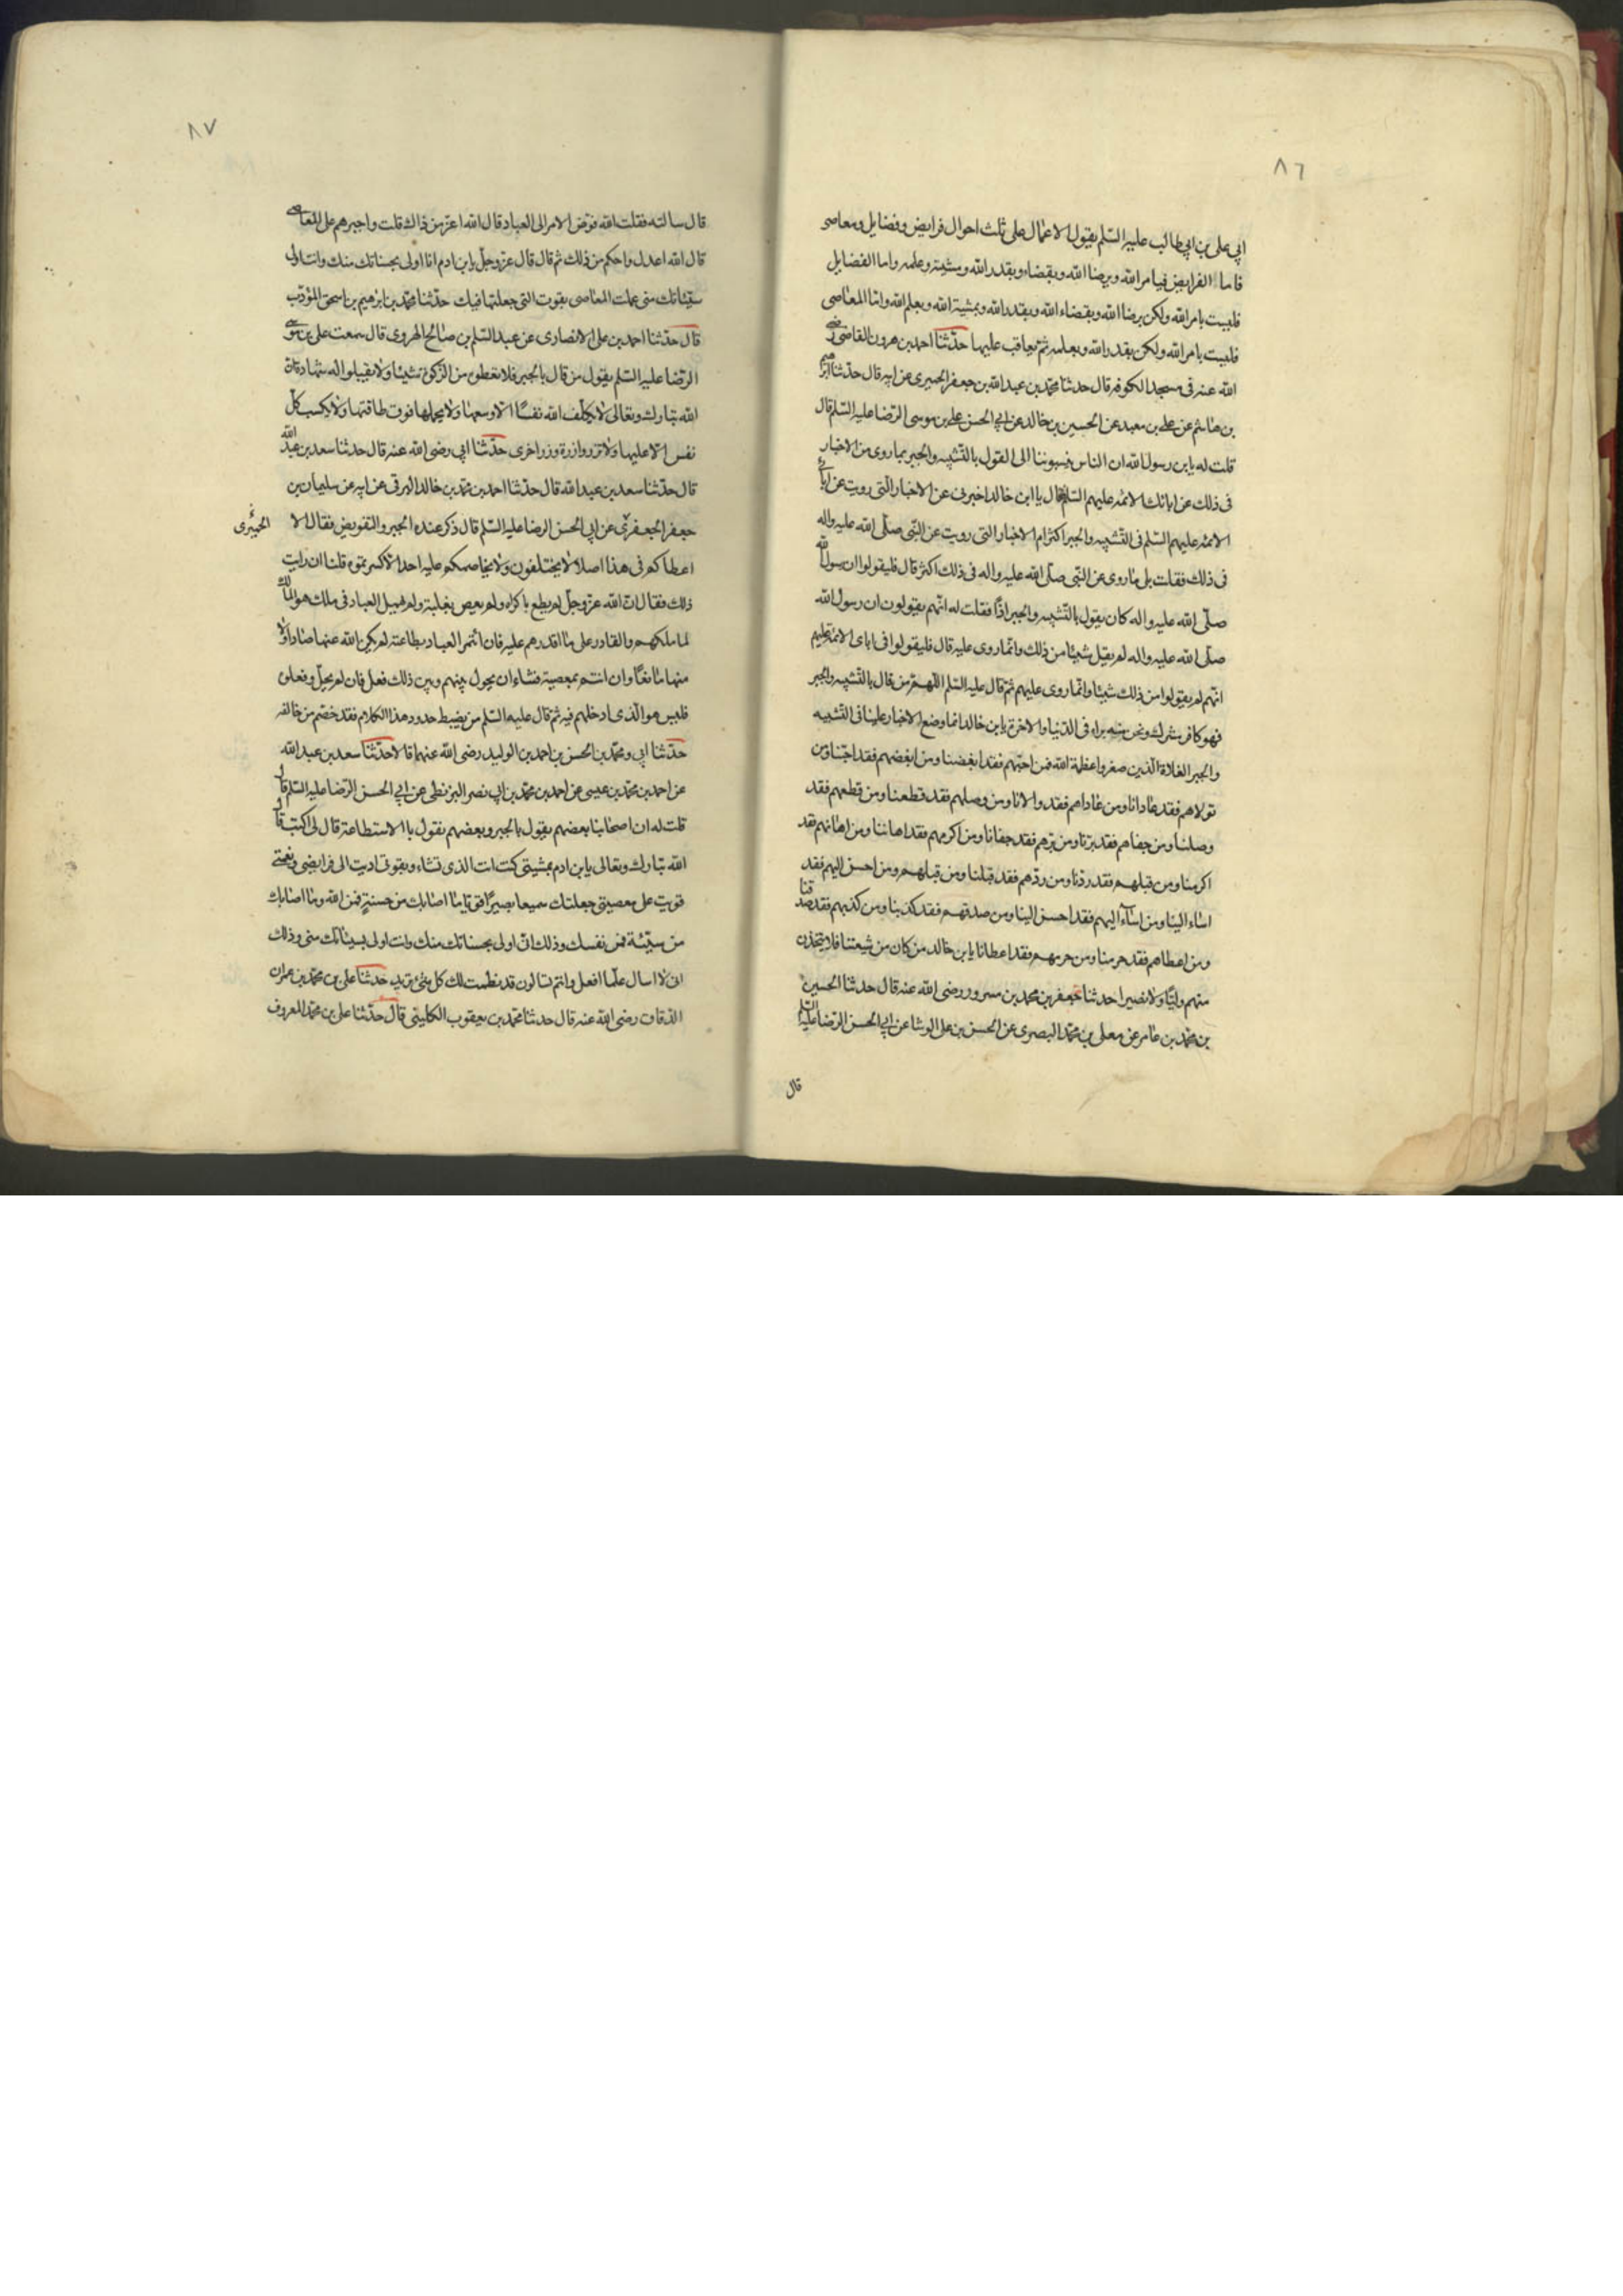 ٨٦
ابي علي بن ابي طالب عليه السّلم يقول الاعمال على ثلث احوال فرايض وفضايل ومعاصي
فاما الفرايض فبامر الله وبرضا الله وبقضاء وبقدر الله ومشيته وعلمه واما الفضايل
فليست بامر الله ولكن برضا الله وبقضاء الله وبقدر الله وبمشية الله وبعلم الله واما المعاصي
فليست بامر الله ولكن بقدر الله وبعلمه ثمّ يعاقب عليها حدّثنا احمد بن هرون القاضي رضي
الله عنه في مسجد الكوفه قال حدثنا محمّد بن عبد الله بن جعفر الحميري عن ابيه قال حدّثنا ابرهيم
بن هاشم عن علي بن معبد عن الحسين بن خالد عن ابي الحسن علي بن موسى الرّضا عليه السّلم قال
قلت له يا بن رسول الله ان الناس ينسبوننا الى القول بالتّشبيه والجبر بما روي من الاخبار
في ذلك عن ابائك الائمه عليهم السّلم فقال يا ابن خالد اخبرني عن الاخبار التي رويت عن ابائي
الائمه عليهم السّلم في التّشبيه والجبر اكثر ام الاخبار التي رويت عن النّبي صلّى الله عليه واله
في ذلك فقلت بل ما روي عن النّبي صلّى الله عليه واله في ذلك اكثر قال فليقولوا ان رسول الله
صلّى الله عليه واله كان يقول بالتّشبيه والجبر اذًا فقلت له انّهم يقولون ان رسول الله
صلّى الله عليه واله لم يقل شيئا من ذلك وانّما روي عليه قال فليقولوا في اباي الائمة عليهم
انّهم لم يقولوا من ذلك شيئا وانّما روي عليهم ثمّ قال عليه السّلم من قال بالتّشبيه والجبر
فهو كافر مشرك ونحن منه براء في الدّنيا والاخرة يا بن خالد انما وضع الاخبار علينا في التّشبيه
والجبر الغلاة الّذين صغروا عظمة الله فمن احبّهم فقد ابغضنا ومن ابغضهم فقد احبّنا ومن
تولاهم فقد عادانا ومن عاداهم فقد والانا ومن وصلهم فقد قطعنا ومن قطعهم فقد
وصلنا ومن جفاهم فقد برّنا ومن برّهم فقد جفانا ومن اكرمهم فقد اهاننا ومن اهانهم فقد
اكرمنا ومن قبلهم فقد ردّنا ومن ردّهم فقد قبلنا ومن احسن اليهم فقد
اساء الينا ومن اساء اليهم فقد احسن الينا ومن صدقهم فقد كذبنا ومن كذبهم فقد صدقنا
ومن اعطاهم فقد حرمنا ومن حرمهم فقد اعطانا يا بن خالد من كان من شيعتنا فلا يتخذن
منهم وليّا ولا نصيرا حدثنا جعفر بن محمد بن مسرور رضي الله عنه قال حدثنا الحسين
بن محمّد بن عامر عن معلى بن محمّد البصري عن الحسن بن علي الوشا عن ابي الحسن الرّضا عليه السّلم
قال
٨٧
قال سالته فقلت الله فوّض الامر الى العباد قال الله اعزّ من ذاك قلت واجبرهم على المعاصي
قال الله اعدل واحكم من ذلك ثم قال قال عزّ وجلّ يا بن ادم انا اولى بحسناتك منك وانت اولى
بسيّئاتك منّي عملت المعاصي بقوت التي جعلتها فيك حدّثنا محمّد بن ابرهيم بن اسحق المؤدّب
قال حدّثنا احمد بن علي الانصاري عن عبد السّلم بن صالح الهروي قال سمعت علي بن موسى
الرّضا عليه السّلم يقول من قال بالجبر فلا تعطوه من الزّكوة شيئا ولا تقبلوا له شهادة ان
الله تبارك وتعالى لا يكلّف الله نفسًا الّا وسعها ولا يحملها فوق طاقتها ولا يكسب كلّ
نفس الّا عليها ولا تزر وازرة وزر اخرى حدّثنا ابي رضي الله عنه قال حدثنا سعد بن عبد الله
قال حدّثنا سعد بن عبد الله قال حدّثنا احمد بن محمّد بن خالد البرقي عن ابيه عن سليمان بن
جعفر الجعفري عن ابي الحسن الرضا عليه السّلم قال ذكر عنده الجبر والتفويض فقال الا
الحميري
اعطاكم في هذا اصلا لا يختلفون ولا يخاصمكم عليه احد الّا كسرتموه قلنا ان رايت
ذلك فقال انّ الله عزّ وجلّ لم يطع باكراه ولم يعص بغلبة ولم يهمل العباد في ملكه هو المالك
لما ملكهم والقادر على ما اقدرهم عليه فان ائتمر العباد بطاعته لم يكن الله عنها صادا ولا
منها مانعًا وان ائتمروا بمعصية فشاء ان يحول بينهم وبين ذلك فعل فان لم يحل وفعلوه
فليس هو الّذي ادخلهم فيه ثم قال عليه السّلم من يضبط حدود هذا الكلام فقد خصم من خالفه
حدّثنا ابي ومحمّد بن الحسن بن احمد بن الوليد رضي الله عنهما قالا حدّثنا سعد بن عبد الله
عن احمد بن محمّد بن عيسى عن احمد بن محمّد بن ابي نصر البزنطي عن ابي الحسن الرّضا عليه السّلم قال
قلت له ان اصحابنا بعضهم يقول بالجبر وبعضهم يقول بالاستطاعة قال لي اكتب قال
الله تبارك وتعالى يا بن ادم بمشيتي كنت انت الذي تشاء وبقوتي اديت الى فرايضي وبنعمتي
قويت على معصيتي جعلتك سميعا بصيرًا قويّا ما اصابك من حسنةٍ فمن الله وما اصابك
من سيّئة فمن نفسك وذلك انّي اولى بحسناتك منك وانت اولى بسيئاتك مني وذلك
انّي لا اسال عمّا افعل وانتم تسالون قد نظمت لك كل شيء تريد حدثنا علي بن محمّد بن عمران
الدّقاق رضي الله عنه قال حدثنا محمّد بن يعقوب الكليني قال حدّثنا علي بن محمّد المعروف